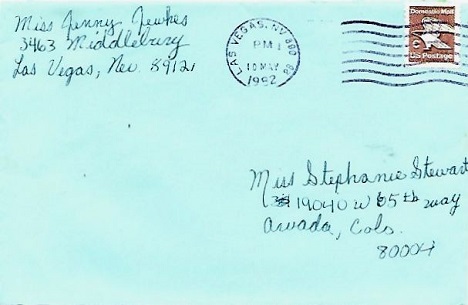 Miss Jenny Jewkes
3463 Middlebury
Las Vegas, Nev. 89121
LAS VEGAS, NV 890
PM
10 MAY
1982
Domestic Mail
C
US Postage
Miss Stephanie Stewart
19040 W 65th way
Arvada, Colo.
80004